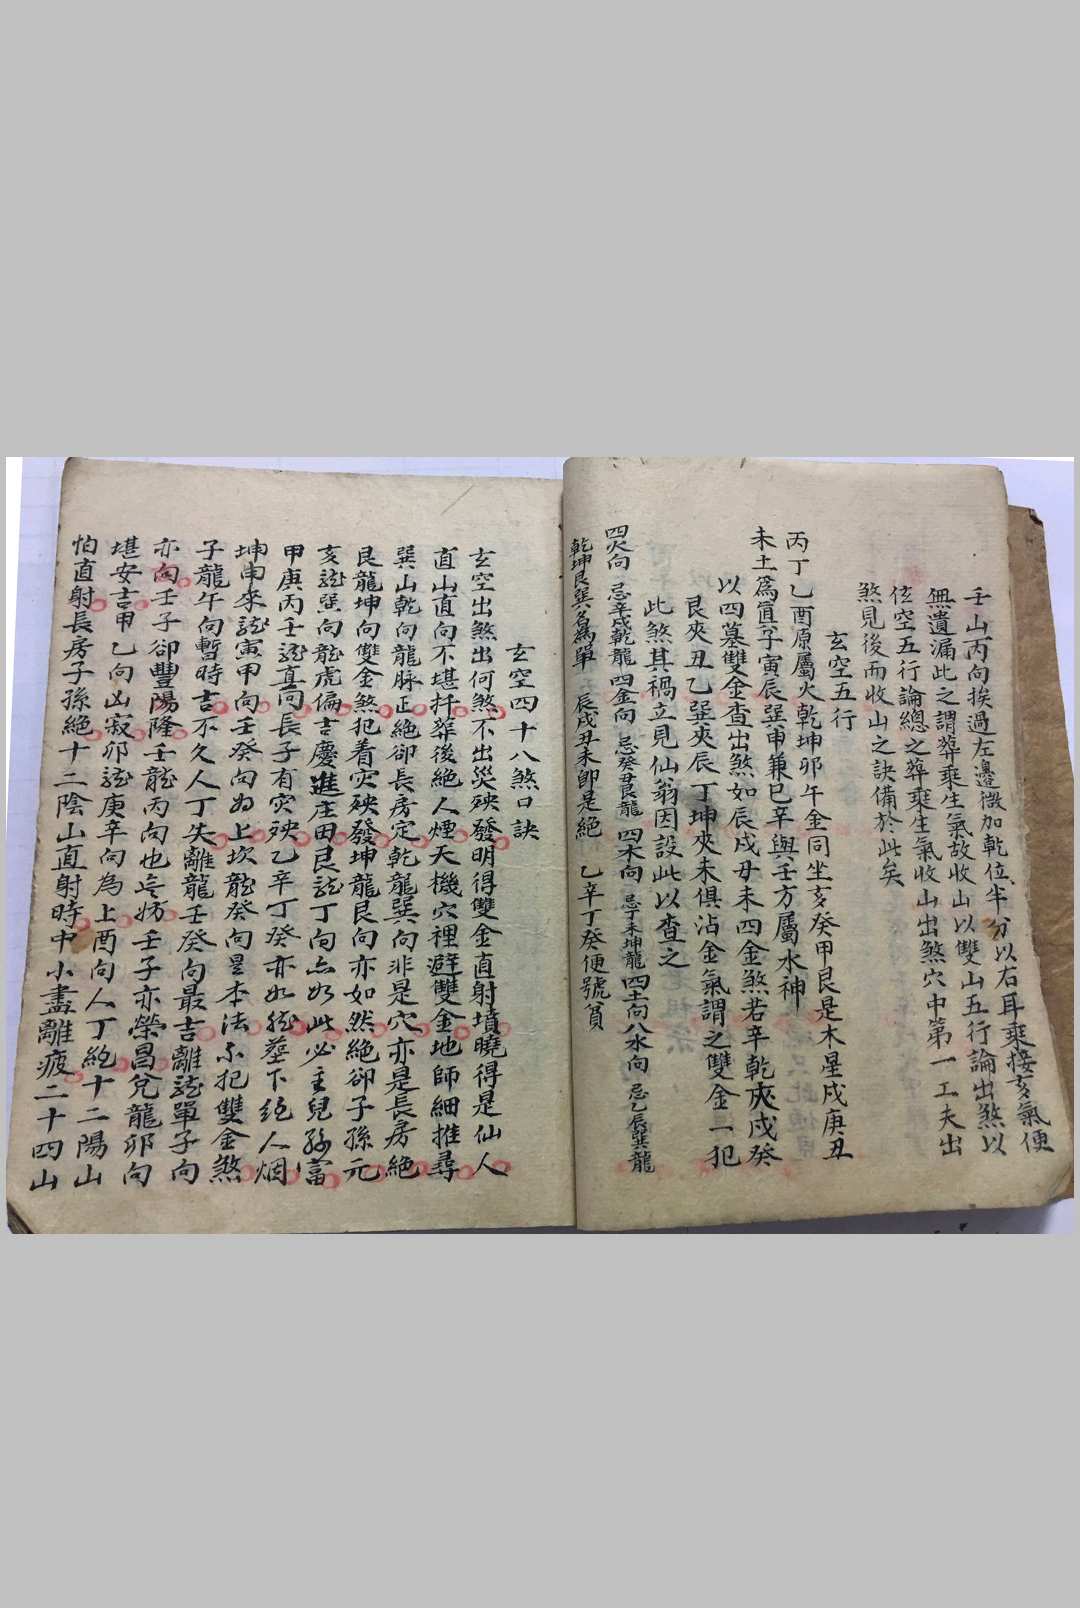 壬山丙向挨過左邊微加乾位半分以右耳乘接亥氣便
無遺漏此之謂葬乘生氣故收山以雙山五行論出煞以
玄空五行論總之葬乘生氣收山出煞穴中第一工夫出
煞見後而收山之訣備於此矣
玄空五行
丙丁乙酉原屬火乾坤卯午金同坐亥癸甲艮是木星戌庚丑
未土為真子寅辰巽申兼巳辛與壬方屬水神
以四墓雙金查出煞如辰戌丑未四金煞若辛乾夾戌癸
艮夾丑乙巽夾辰丁坤夾未俱沾金氣謂之雙金一犯
此煞其禍立見仙翁因設此以查之
四火向 忌辛戌乾龍 四金向 忌癸丑艮龍 四木向 忌丁未坤龍 四土向八水向 忌乙辰巽龍
乾坤艮巽名為單 辰戌丑未即是絕 乙辛丁癸便號貧
玄空四十八煞口訣
玄空出煞出何煞不出災殃發明得雙金直射墳曉得是仙人
直山直向不堪扦葬後絕人煙天機穴裡避雙金地師細推尋
巽山乾向龍脉正絕卻長房定乾龍巽向非是穴亦是長房絕
艮龍坤向雙金煞犯着灾殃發坤龍艮向亦如然絕卻子孫元
亥龍巽向龍虎偏吉慶進庄田艮龍丁向亦如此必主兒孫富
甲庚丙壬龍直向長子有灾殃乙辛丁癸亦如龍墓下絕人烟
坤申來龍寅甲向壬癸向為上坎龍癸向是本法不犯雙金煞
子龍午向暫時吉不久人丁失離龍壬癸向最吉離龍單子向
亦向壬子卻豐陽隆壬龍丙向也無妨壬子亦榮昌兌龍卯向
堪安吉甲乙向凶寂卯龍庚辛向為上酉向人丁絕十二陽山
怕直射長房子孫絕十二陰山直射時中小盡離疲二十四山